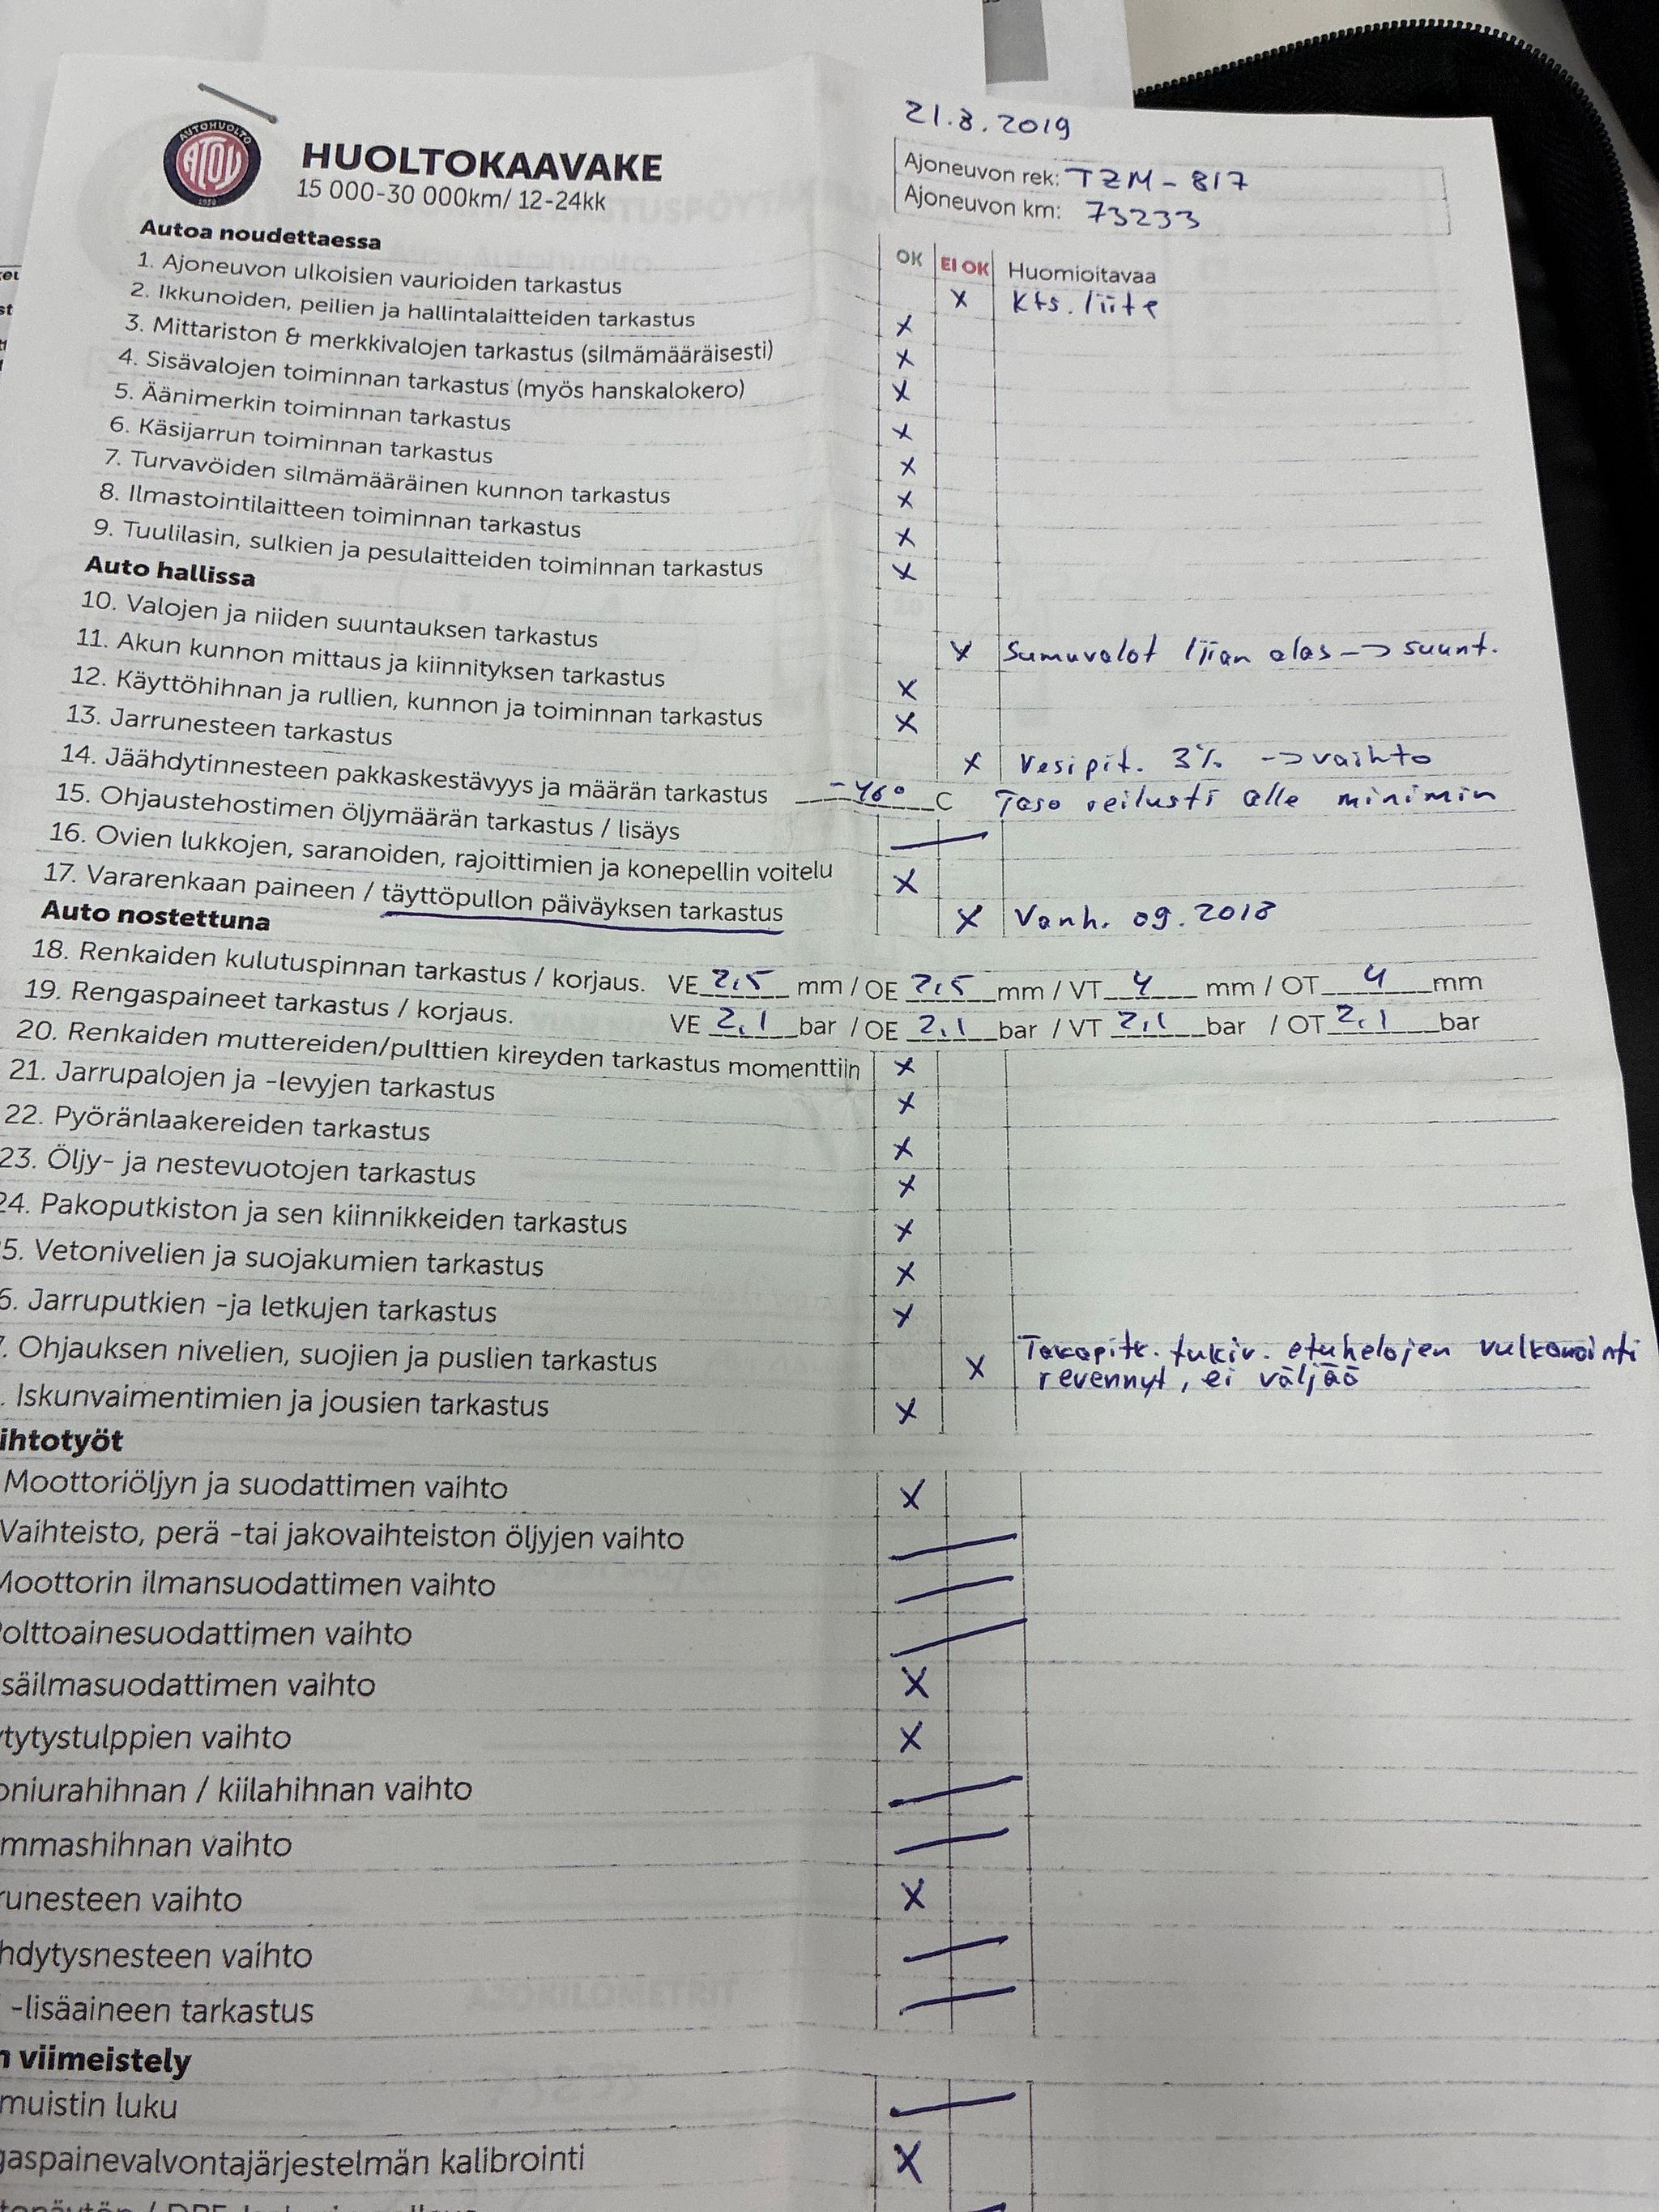 21.8.2019
AUTOHUOLTO
ATOY
1938
HUOLTOKAAVAKE
15 000-30 000km/ 12-24kk
Ajoneuvon rek: TZM-817
Ajoneuvon km: 73233
Autoa noudettaessa
OK EI OK Huomioitavaa
1. Ajoneuvon ulkoisien vaurioiden tarkastus x Kts. liite
2. Ikkunoiden, peilien ja hallintalaitteiden tarkastus x
3. Mittariston & merkkivalojen tarkastus (silmämääräisesti) x
4. Sisävalojen toiminnan tarkastus (myös hanskalokero) x
5. Äänimerkin toiminnan tarkastus x
6. Käsijarrun toiminnan tarkastus x
7. Turvavöiden silmämääräinen kunnon tarkastus x
8. Ilmastointilaitteen toiminnan tarkastus x
9. Tuulilasin, sulkien ja pesulaitteiden toiminnan tarkastus x
Auto hallissa
10. Valojen ja niiden suuntauksen tarkastus x Sumuvalot liian alas -> suunt.
11. Akun kunnon mittaus ja kiinnityksen tarkastus x
12. Käyttöhihnan ja rullien, kunnon ja toiminnan tarkastus x
13. Jarrunesteen tarkastus x Vesipit. 3% -> vaihto
14. Jäähdytinnesteen pakkaskestävyys ja määrän tarkastus -46° C Taso reilusti alle minimin
15. Ohjaustehostimen öljymäärän tarkastus / lisäys
16. Ovien lukkojen, saranoiden, rajoittimien ja konepellin voitelu x
17. Vararenkaan paineen / täyttöpullon päiväyksen tarkastus x Vanh. 09.2018
Auto nostettuna
18. Renkaiden kulutuspinnan tarkastus / korjaus. VE 2,5 mm / OE 2,5 mm / VT 4 mm / OT 4 mm
19. Rengaspaineet tarkastus / korjaus. VE 2,1 bar / OE 2,1 bar / VT 2,1 bar / OT 2,1 bar
20. Renkaiden muttereiden/pulttien kireyden tarkastus momenttiin x
21. Jarrupalojen ja -levyjen tarkastus x
22. Pyöränlaakereiden tarkastus x
23. Öljy- ja nestevuotojen tarkastus x
24. Pakoputkiston ja sen kiinnikkeiden tarkastus x
5. Vetonivelien ja suojakumien tarkastus x
6. Jarruputkien -ja letkujen tarkastus x
. Ohjauksen nivelien, suojien ja puslien tarkastus x Takapitk. tukiv. etuhelojen vulkanointi
revennyt, ei väljää
. Iskunvaimentimien ja jousien tarkastus x
ihtotyöt
Moottoriöljyn ja suodattimen vaihto x
Vaihteisto, perä -tai jakovaihteiston öljyjen vaihto
Moottorin ilmansuodattimen vaihto
olttoainesuodattimen vaihto
säilmasuodattimen vaihto x
ytytystulppien vaihto x
oniurahihnan / kiilahihnan vaihto
mmashihnan vaihto
runesteen vaihto x
hdytysnesteen vaihto
-lisäaineen tarkastus
n viimeistely
muistin luku
gaspainevalvontajärjestelmän kalibrointi x